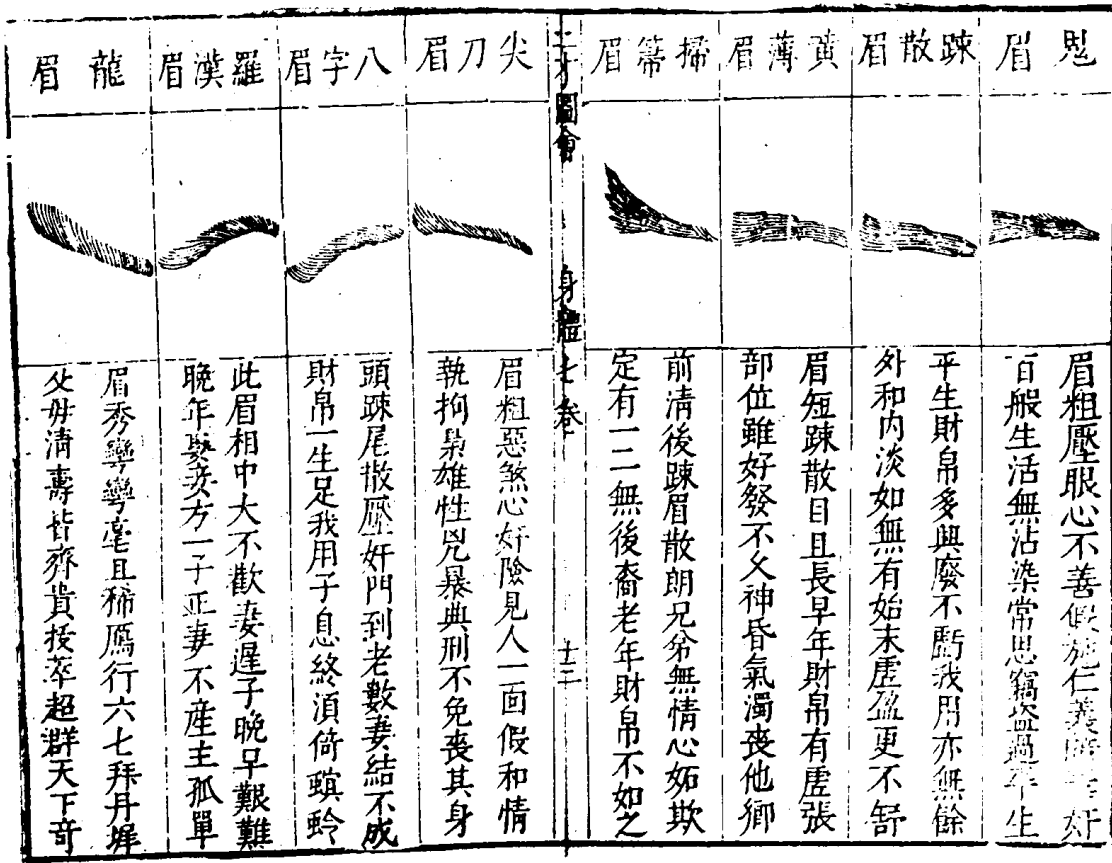 鬼眉
眉粗壓眼心不善假施仁義
百般生活無沾染常思竊盜過平生
踈散眉
平生財帛多興廢不虧我用亦無餘
外和內淡如無有始末虛盈更不舒
黃薄眉
眉短踈散目且長早年財帛有虛張
部位雖好發不久神昏氣濁喪他鄉
掃箒眉
前清後踈眉散朗兄弟無情心妬欺
定有一二無後裔老年財帛不如之
三才圖會
身體七卷
十二
尖刀眉
眉粗惡煞心奸險見人一面假和情
執拘梟雄性兇暴典刑不免喪其身
八字眉
頭踈尾散壓奸門到老數妻結不成
財帛一生足我用子息終須倚螟蛉
羅漢眉
此眉相中大不歡妻遲子晚早艱難
晚年娶妾方一子正妻不產主孤單
龍眉
眉秀彎彎毫且稀鴈行六七拜丹墀
父母清壽皆齊貴拔萃超群天下奇